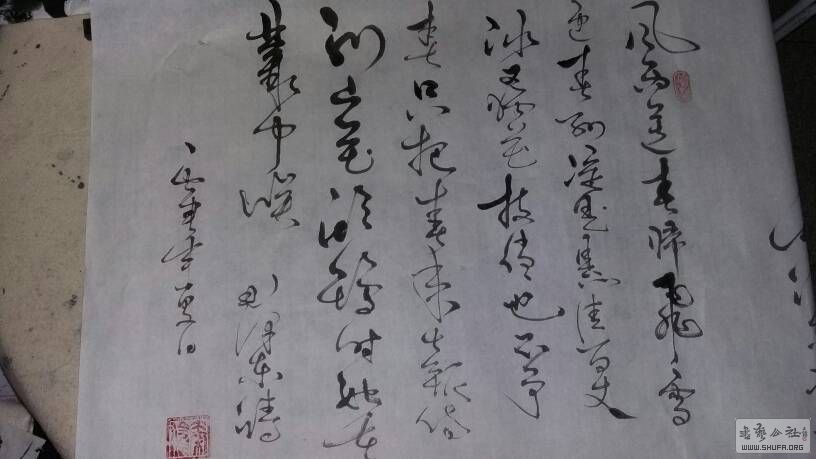 风雨送春归飞雪
迎春到已是悬崖百丈
冰犹有花枝俏也不争
春只把春来报待
到山花烂漫时她在
叢中笑 毛泽东
年夏日
书艺公社
WWW.SHUFA.ORG